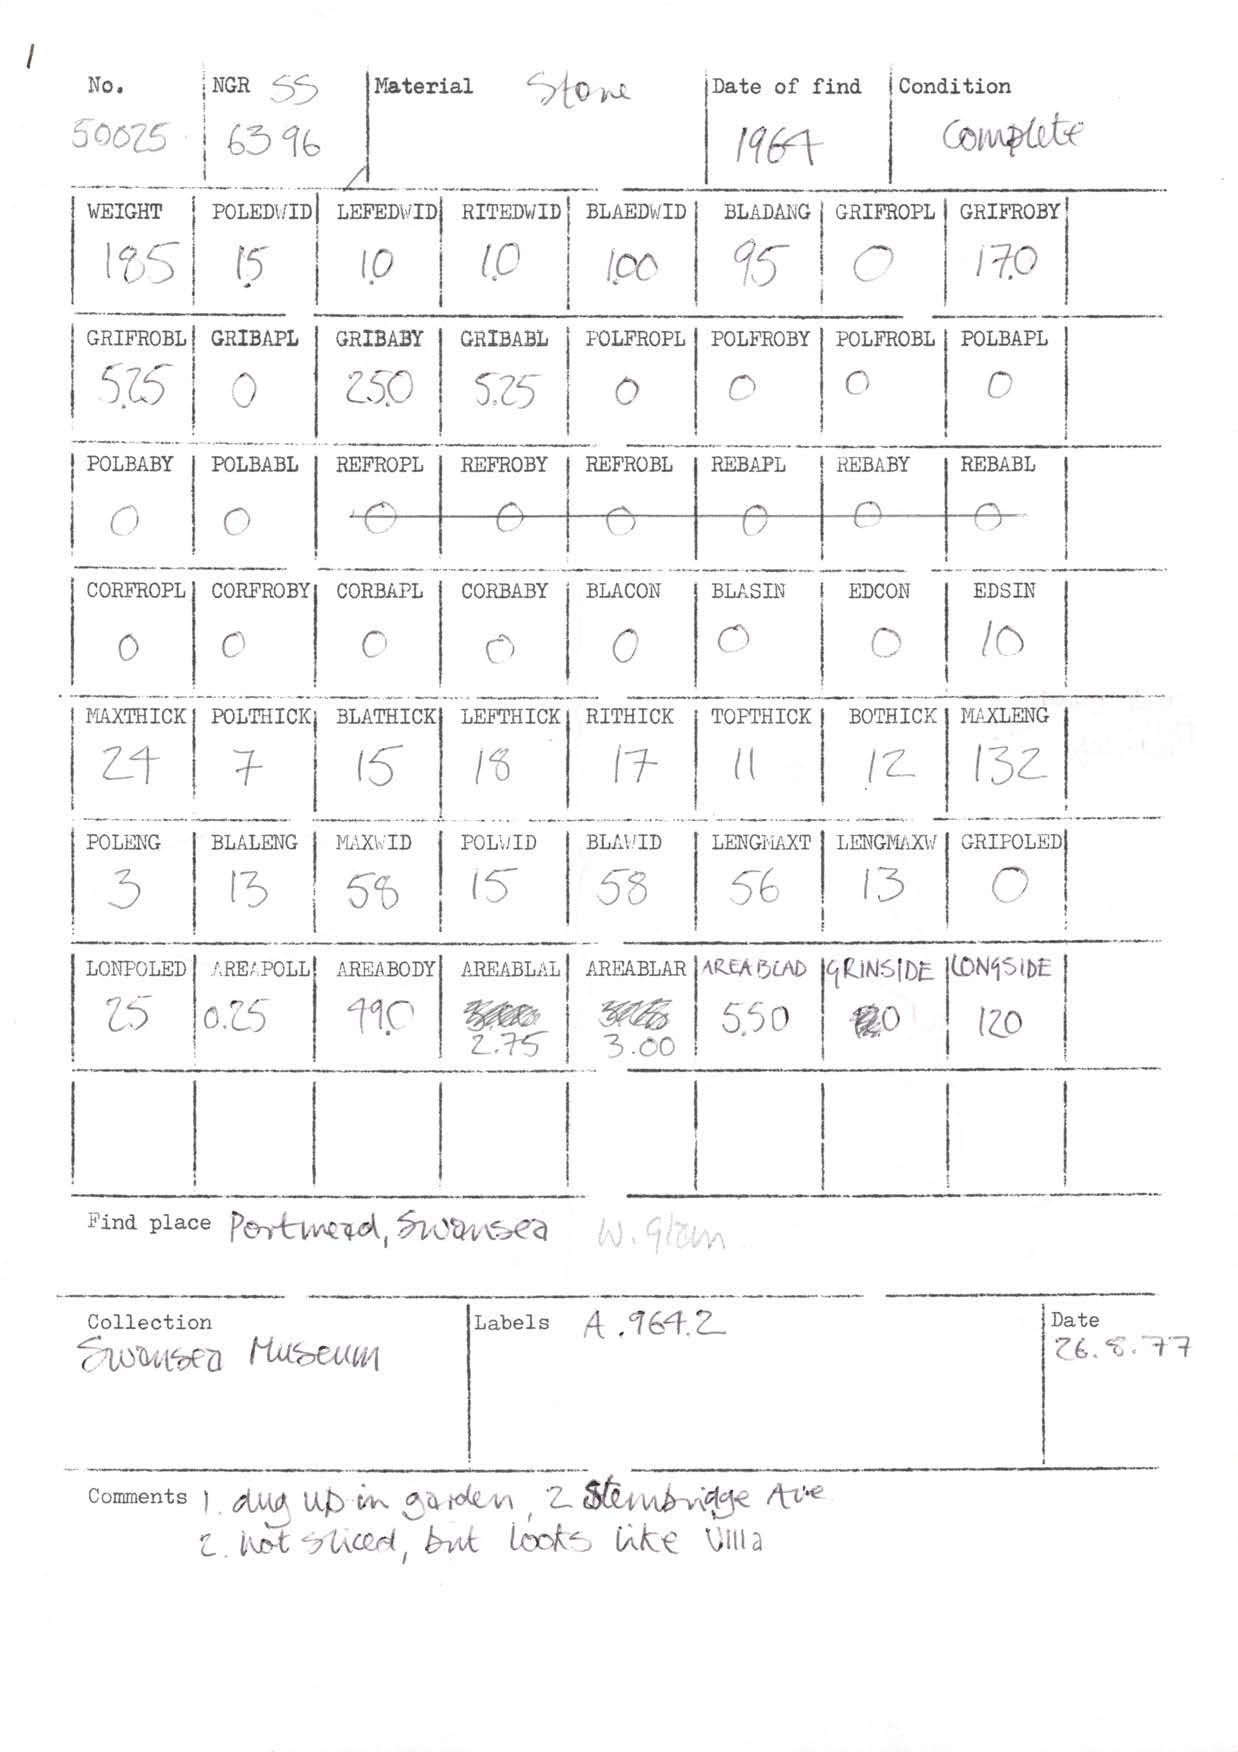 1
No. NGR SS Material Stone Date of find Condition
50025 6396 1964 Complete
WEIGHT POLEDWID LEFEDWID RITEDWID BLAEDWID BLADANG GRIFROPL GRIFROBY
185 1.5 1.0 1.0 1.00 95 0 17.0
GRIFROBL GRIBAPL GRIBABY GRIBABL POLFROPL POLFROBY POLFROBL POLBAPL
5.25 0 25.0 5.25 0 0 0 0
POLBABY POLBABL REFROPL REFROBY REFROBL REBAPL REBABY REBABL
0 0 0 0 0 0 0 0
CORFROPL CORFROBY CORBAPL CORBABY BLACON BLASIN EDCON EDSIN
0 0 0 0 0 0 0 10
MAXTHICK POLTHICK BLATHICK LEFTHICK RITHICK TOPTHICK BOTHICK MAXLENG
24 7 15 18 17 11 12 132
POLENG BLALENG MAXWID POLWID BLAWID LENGMAXT LENGMAXW GRIPOLED
3 13 58 15 58 56 13 0
LONPOLED AREAPOLL AREABODY AREABLAL AREABLAR AREABLAD GRINSIDE LONGSIDE
25 0.25 49.0 2.75 3.00 5.50 0 120
Find place Portmead, Swansea W. Glam
Collection Labels A.964.2 Date
Swansea Museum 26.8.77
Comments 1. dug up in garden, 2 Stembridge Ave
2. not sliced, but looks like VIIIa